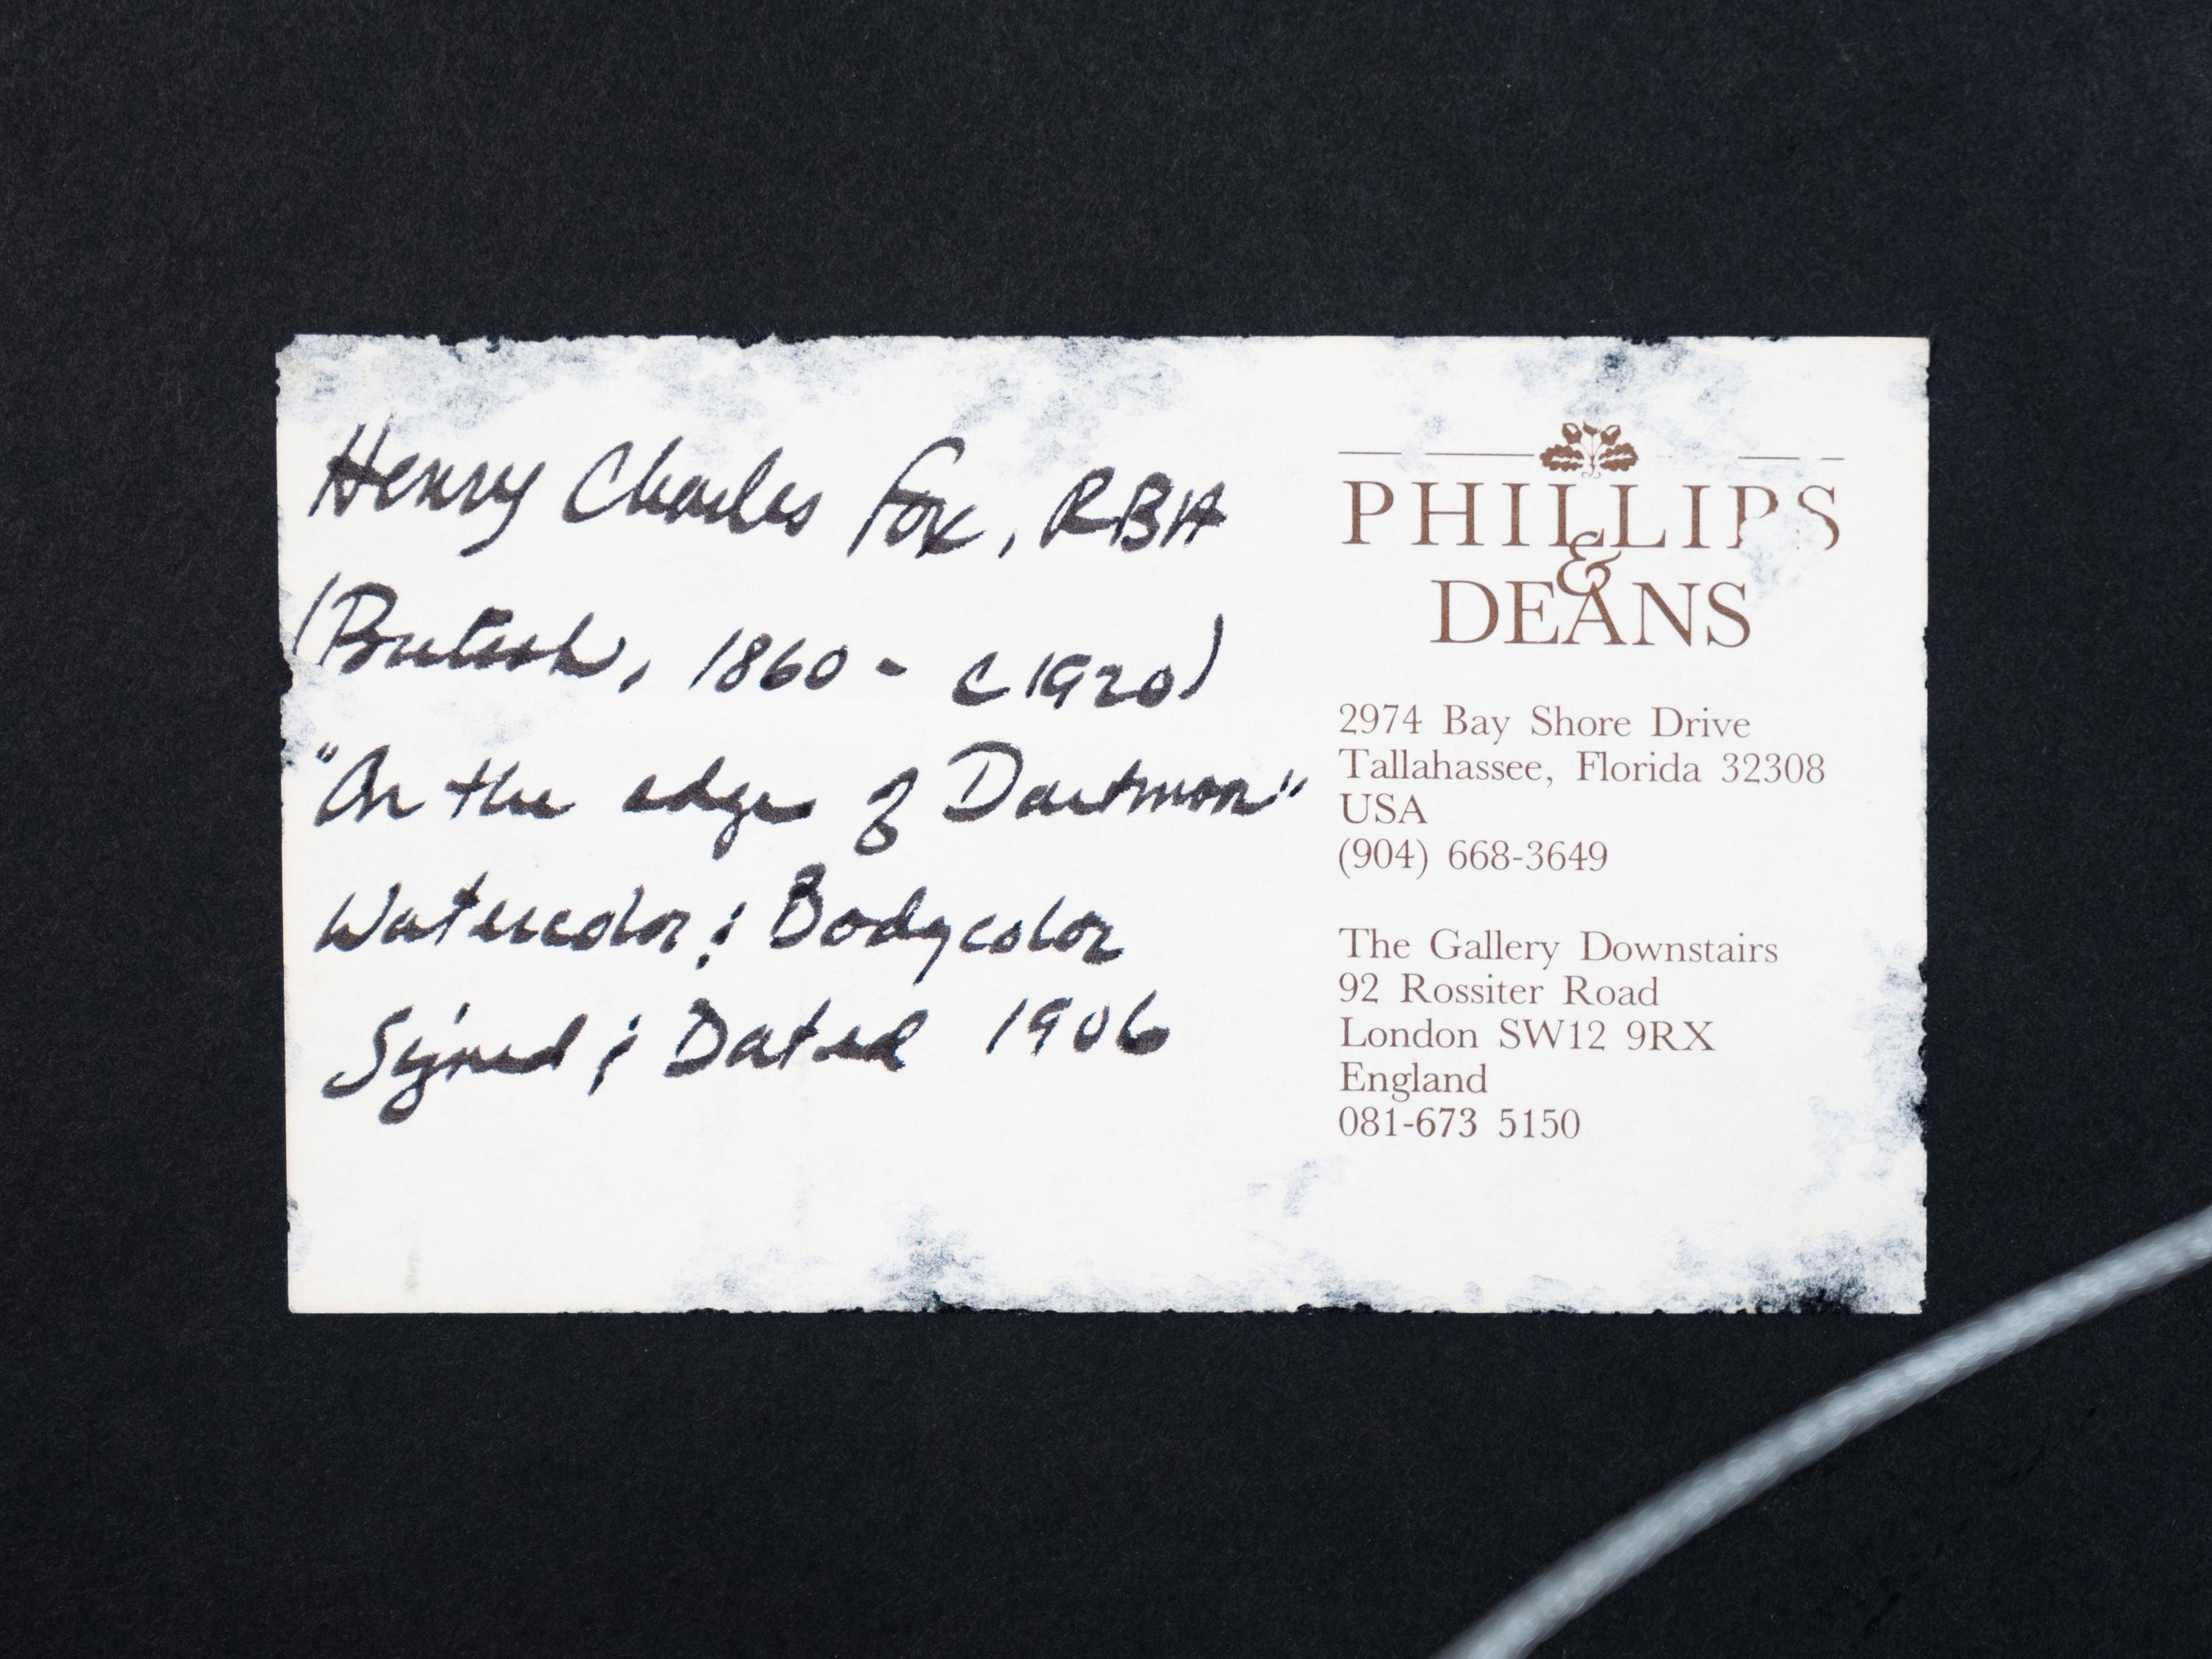 Henry Charles Fox, RBA
(British, 1860 - c1920)
"On the edge of Dartmoor"
Watercolor & Bodycolor
Signed & Dated 1906
PHILLIPS
&
DEANS
2974 Bay Shore Drive
Tallahassee, Florida 32308
USA
(904) 668-3649
The Gallery Downstairs
92 Rossiter Road
London SW12 9RX
England
081-673 5150